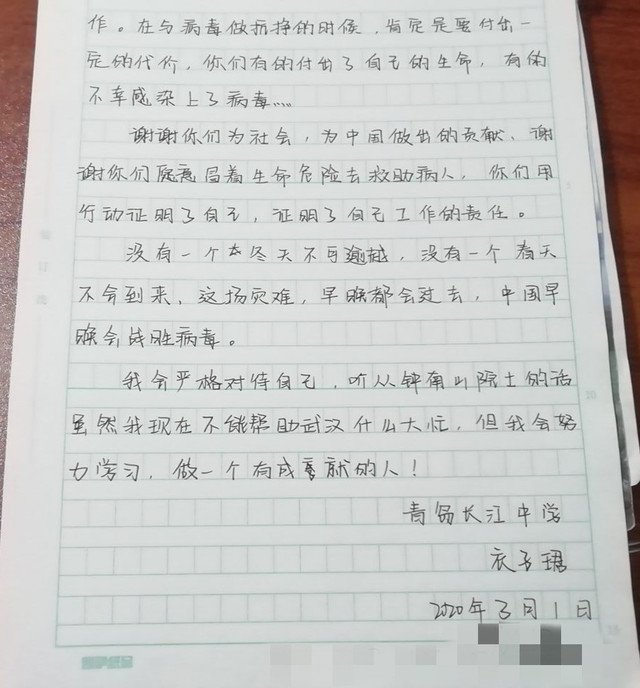 作。在与病毒做抗挣的时候，肯定是要付出一
定的代价，你们有的付出了自己的生命，有的
不幸感染上了病毒……
谢谢你们为社会，为中国做出的贡献、谢
谢你们愿意冒着生命危险去救助病人，你们用
行动证明了自己，证明了自己工作的责任。
没有一个冬天不可逾越，没有一个春天
不会到来、这场灾难，早晚都会过去，中国早
晚会战胜病毒。
我会严格对待自己，听从钟南山院士的话
虽然我现在不能帮助武汉什么大忙，但我会努
力学习，做一个有成就的人！
青岛长江中学
衣子珺
2020年3月1日